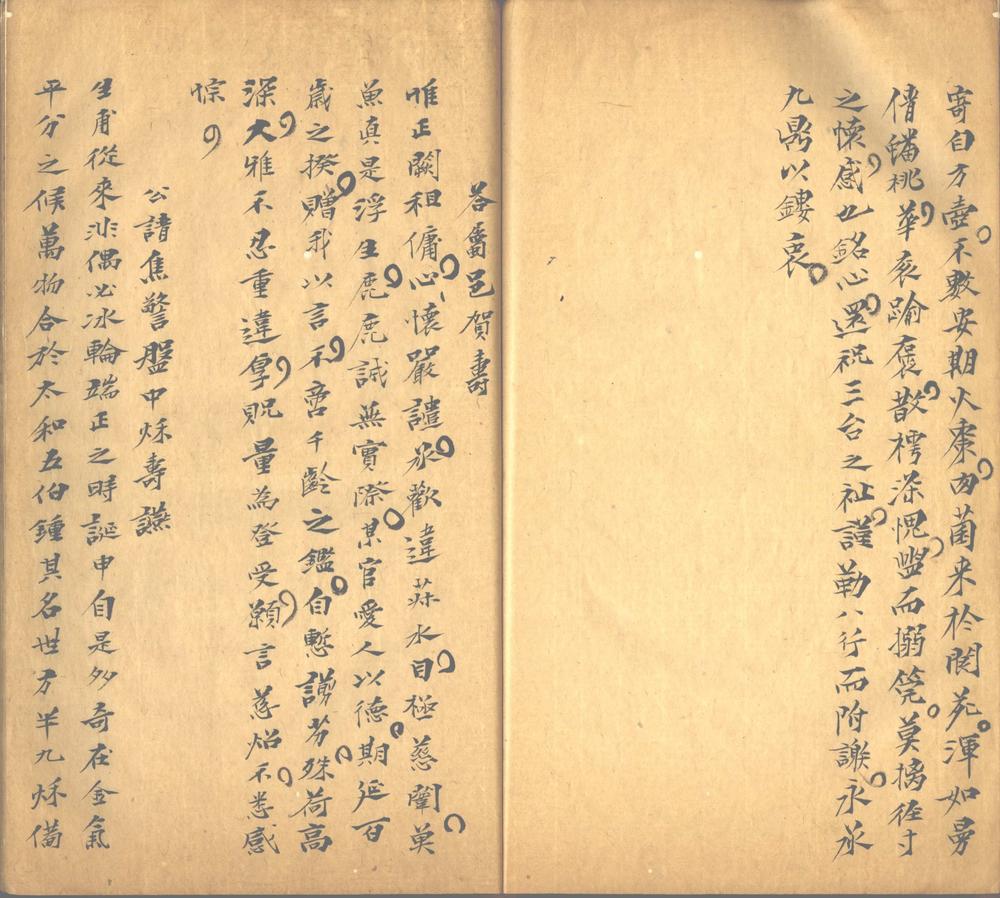 寄自方壺不數安期火棗函菌來於閬苑渾如曼
倩蟠桃華袞踰褒散樗深愧盥而搦筦莫摛徑寸
之懷感也銘心還祝三台之祉謹勒八行而附謝永承
九鼎以鏤衷
荅屬邑賀壽
唯正闕租傭心懷嚴譴承歡違菽水目極慈闈莫
兼真是浮生鹿鹿誠無實際某官愛人以德期延百
歲之揆贈我以言不啻千齡之鑑自慙謭劣殊荷高
深大雅不忍重違孚貺量為登受願言慈炤不悉感
悰
公請焦警盤中秌壽讌
生甫從來非偶必冰輪端正之時誕申自是多奇在金氣
平分之候萬物合於太和五伯鍾其名世方羊九秌備